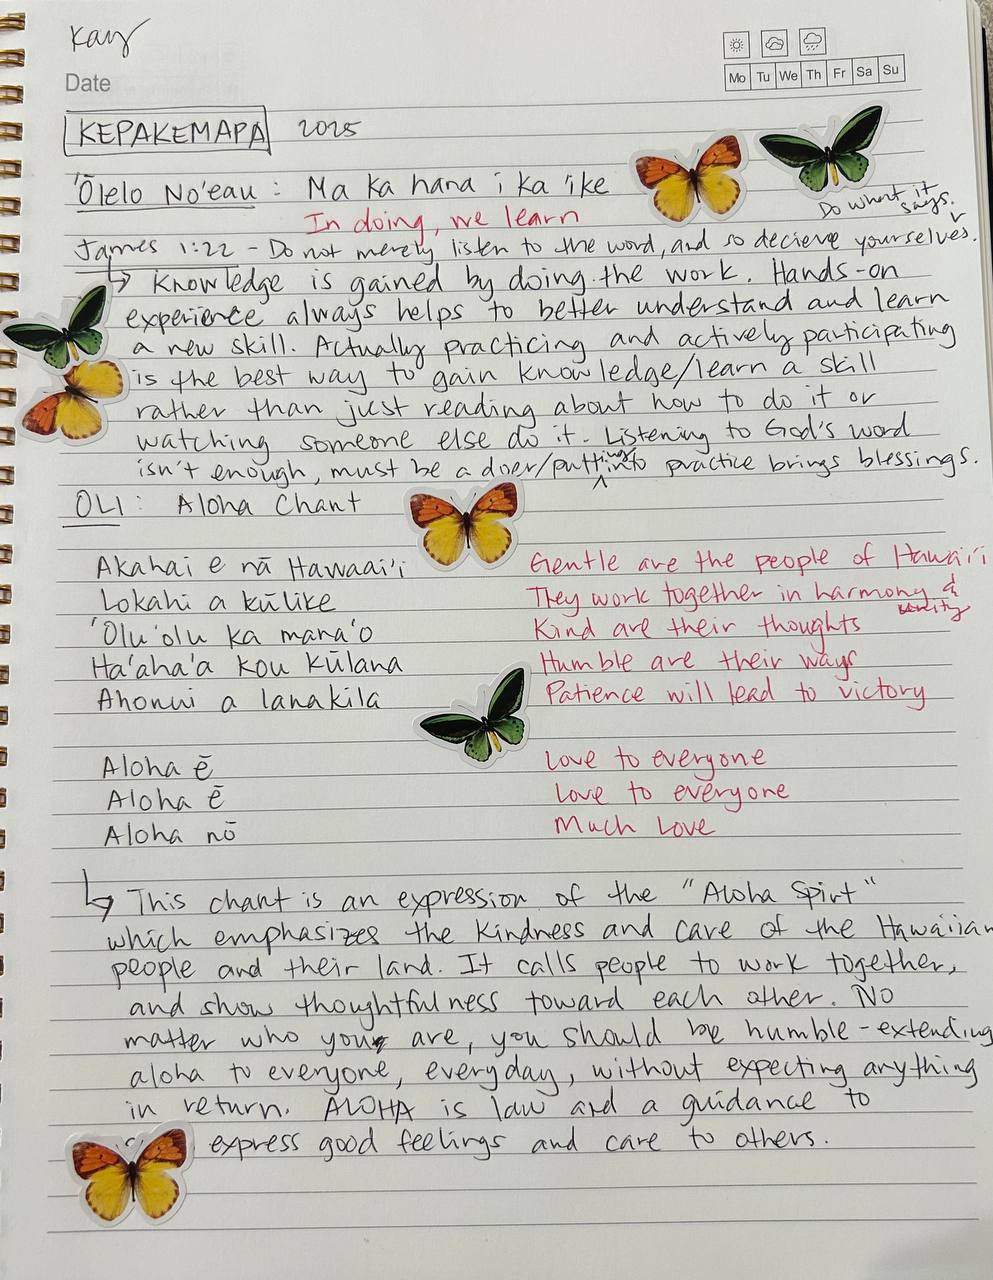 Kay
Date
Mo Tu We Th Fr Sa Su
KEPAKEMAPA 2025
'Ōlelo No'eau : Ma ka hana i ka ike
In doing, we learn
Do what it says.
James 1:22 - Do not merely listen to the word, and so decieve yourselves.
→ Knowledge is gained by doing the work. Hands-on
experience always helps to better understand and learn
a new skill. Actually practicing and actively participating
is the best way to gain knowledge/learn a skill
rather than just reading about how to do it or
watching someone else do it. Listening to God's word
isn't enough, must be a doer/putting into practice brings blessings.
OLI : Aloha Chant
Akahai e nā Hawaai'i Gentle are the people of Hawai'i
Lokahi a kūlike They work together in harmony & unity
'Olu'olu ka mana'o Kind are their thoughts
Ha'aha'a kou kūlana Humble are their ways
Ahonui a lanakila Patience will lead to victory
Aloha ē Love to everyone
Aloha ē Love to everyone
Aloha nō Much Love
↳ This chant is an expression of the "Aloha Spirt"
which emphasizes the kindness and care of the Hawaiian
people and their land. It calls people to work together,
and show thoughtfulness toward each other. No
matter who you are, you should be humble - extending
aloha to everyone, everyday, without expecting anything
in return. ALOHA is law and a guidance to
express good feelings and care to others.